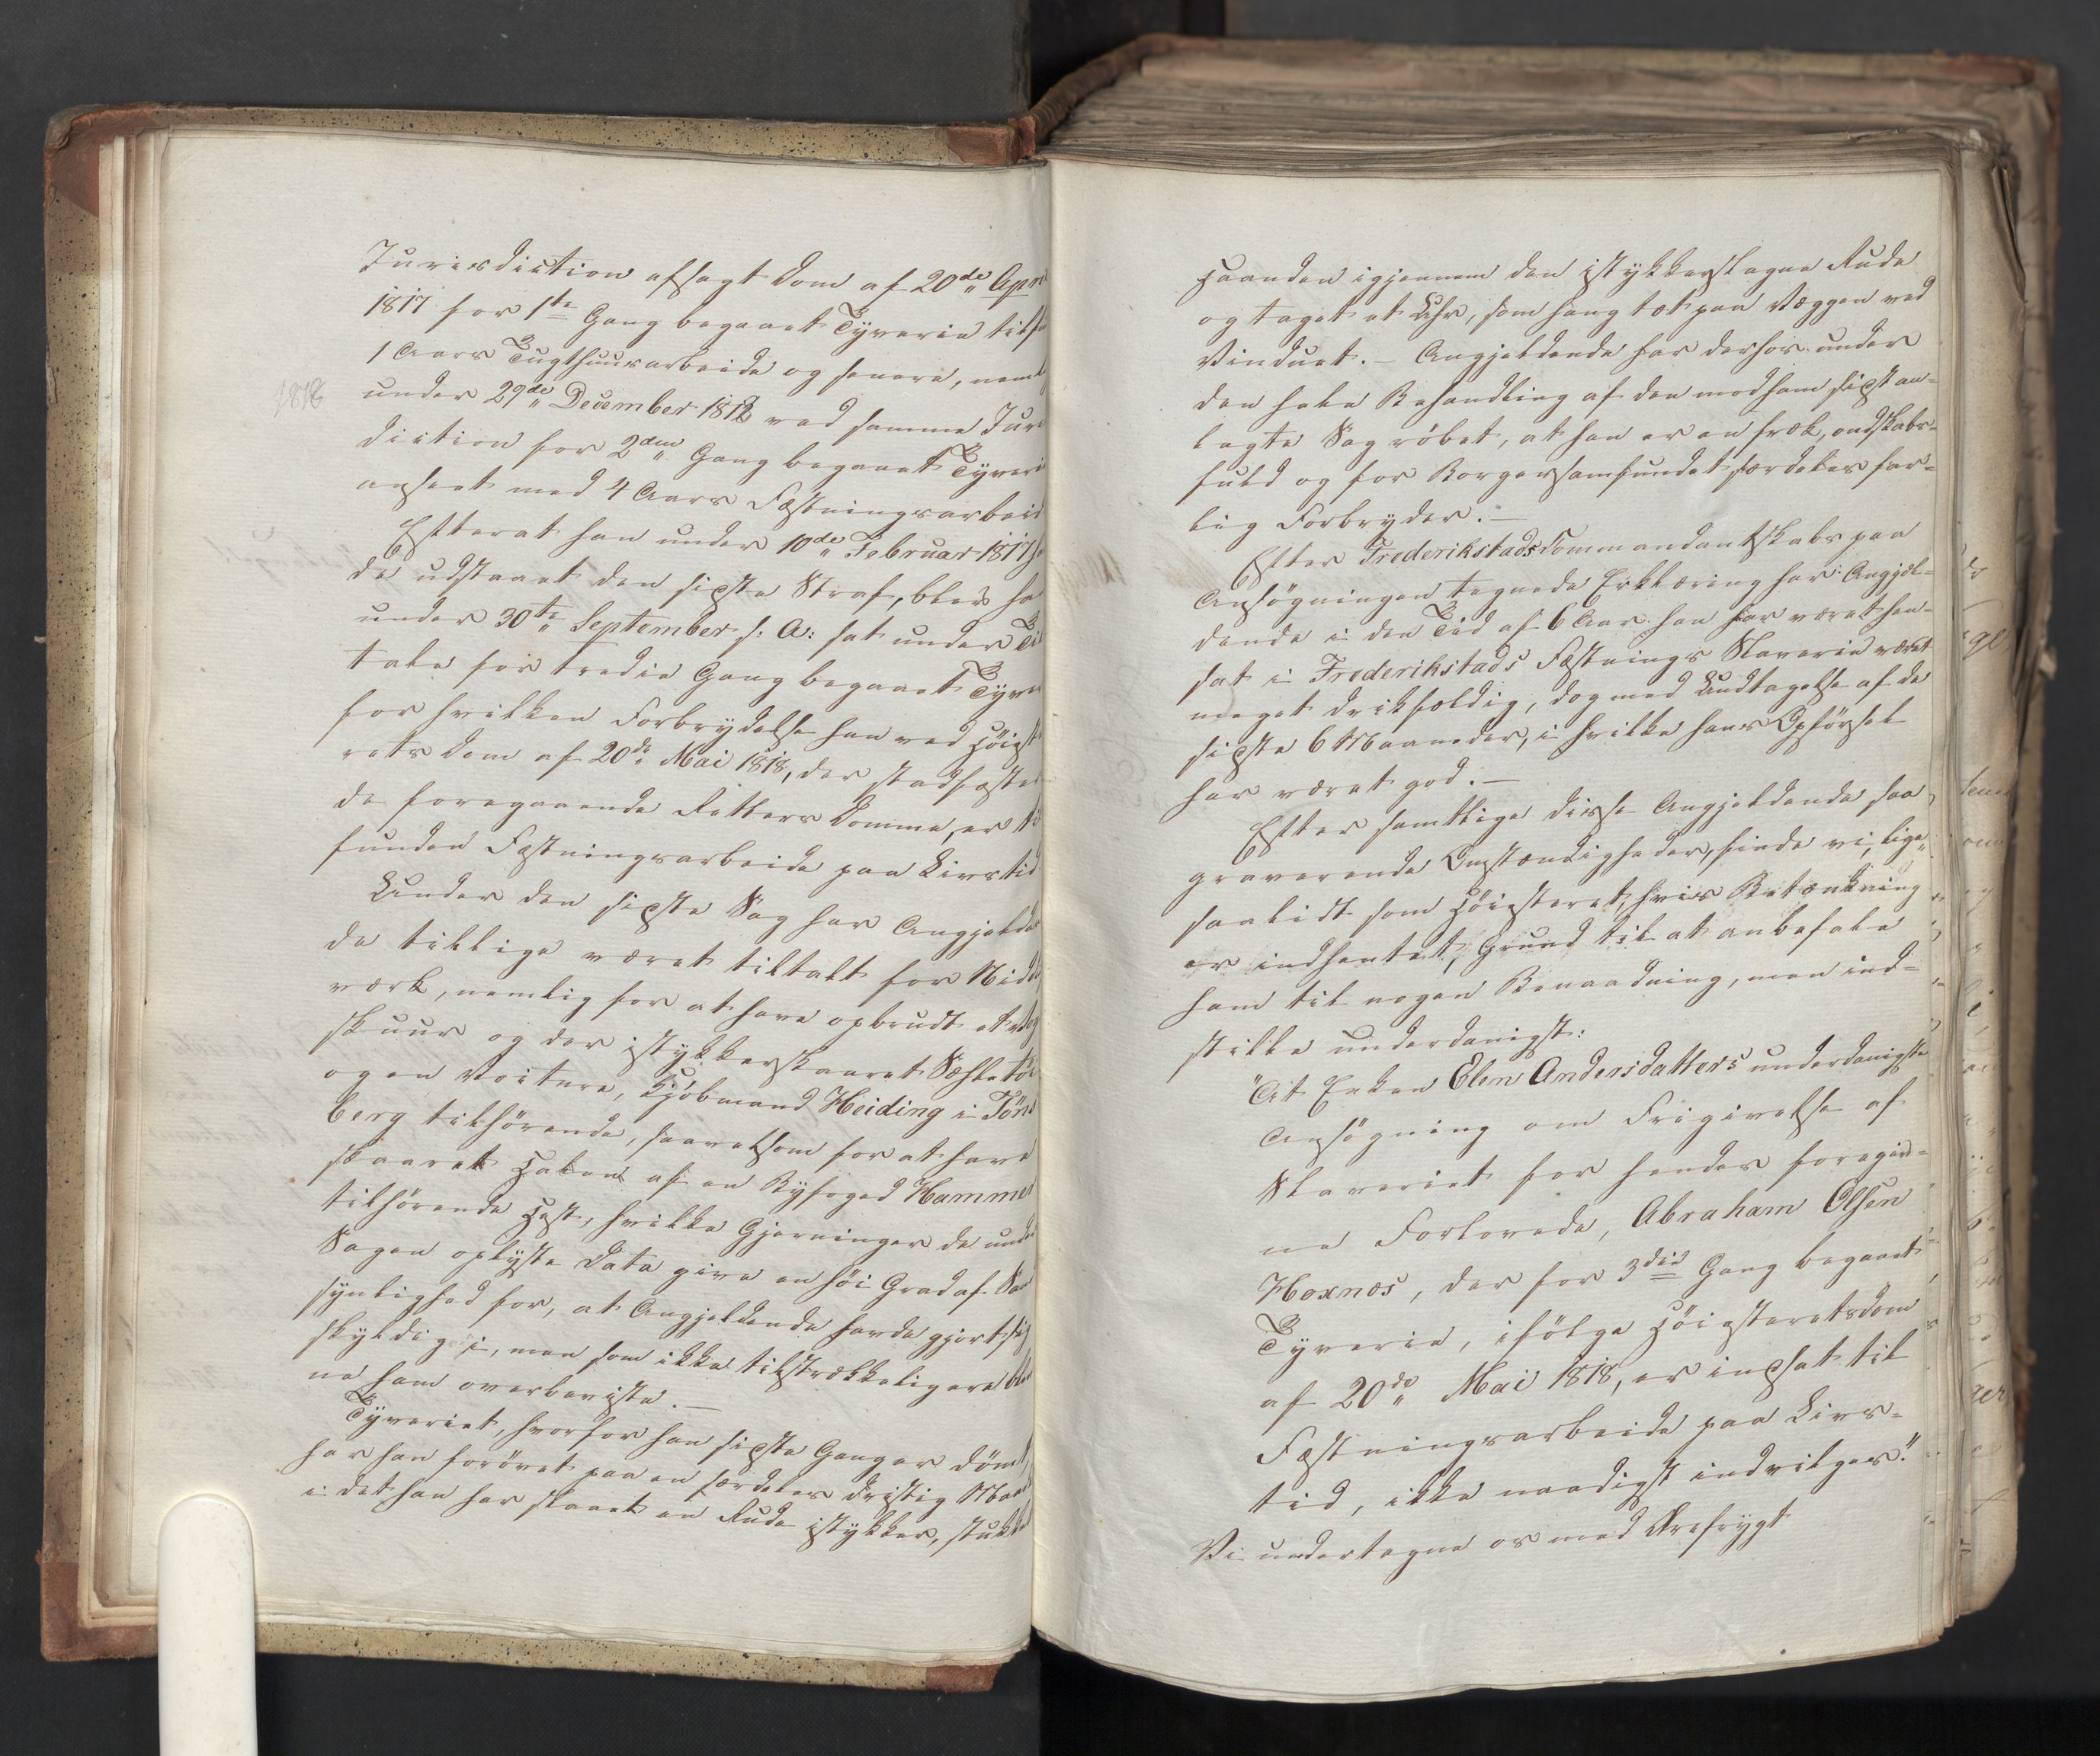 Jurisdiction afsagt Dom af 20de Apri
1817 for 1te Gang begaaet Tyverie tilfu
1 Aars Tugthuusarbeide og senere, neml
under 29de December 1812 ved samme Juris
1818
diction for 2den Gang begaaet Tyveri
anseet med 4 Aars Fæstningsarbeid
Efterat han under 10de Februar 1817 ha
de udstaaet den sidste Straf, blev ha
under 30te September s: A: sat under Til
tale for tredie Gang begaaet Tyve
for hvilken Forbrydelse han ved Høieste
rets Dom af 20de Mai 1818, der stadfæsted
de foregaaende Retters Domme, er til
funden Fæstningsarbeide paa Livstid
Under den sidste Sag har Angjelden
de tillige været tiltalt for Nidings
værk, nemlig for at have opbrudt et Vogn
skuur og der istykkerskaaret Sæletøi
og en Voiture, Kjøbmand Heiding i Töns
berg tilhørende, saavelsom for at have
skaaret Halen af en Byfoged Hammer
tilhørende Hest, hvilke Gjerninger de under
Sagen oplyste Data give en høi Grad af San
synlighed for, at Angjeldende havde gjort sig
skyldig i, men som ikke tilstrækkeligere ble
ne ham overbeviste.—
Tyveriet, hvorfor han sidste Gang er dömt,
har han forövet paa en særdeles dristig Maade
i det han har skaaet en Rude istykker, stukket
Haanden igjennem den istykkerslagne Rude
og taget et Uhr, som hang tæt paa Væggen ved
Vinduet.— Angjeldende har derhos under
den hele Behandling af den mod ham sidst an-
lagte Sag røbet, at han er en fræk, ondskabs-
fuld og for Borgersamfundet særdeles far-
lig Forbryder.—
Efter Frederikstads Commandantskabs paa
Ansøgningen tegnede Erklæring har Angjel-
dende i den Tid af 6 Aar han har været hen-
sat i Frederikstads Fæstnings Slaverie været
meget drikfældig, dog med Undtagelse af de
sidste 6 Maaneder, i hvilke hans Opførsel
har været god.—
Efter samtlige disse Angjeldende saa
graverende Omstændigheder, finde vi, lige
saalidt som Høiesteret, hvis Betænkning
er indhentet, Grund til at anbefale
ham til nogen Benaadning, men ind-
stille underdanigst:
"At Enken Elen Andersdatters underdanigste
Ansøgning om Frigivelse af
Slaveriet for hendes foregiv-
ne Forlovede, Abraham Olsen
Hoxnæs, der for 3die Gang begaaet
Tyverie, ifølge Høiesteretsdom
af 20de Mai 1818, er indsat til
Fæstningsarbeide paa Livs-
tid, ikke naadigst indvilges."
Vi undertegne os med Ærefrygt